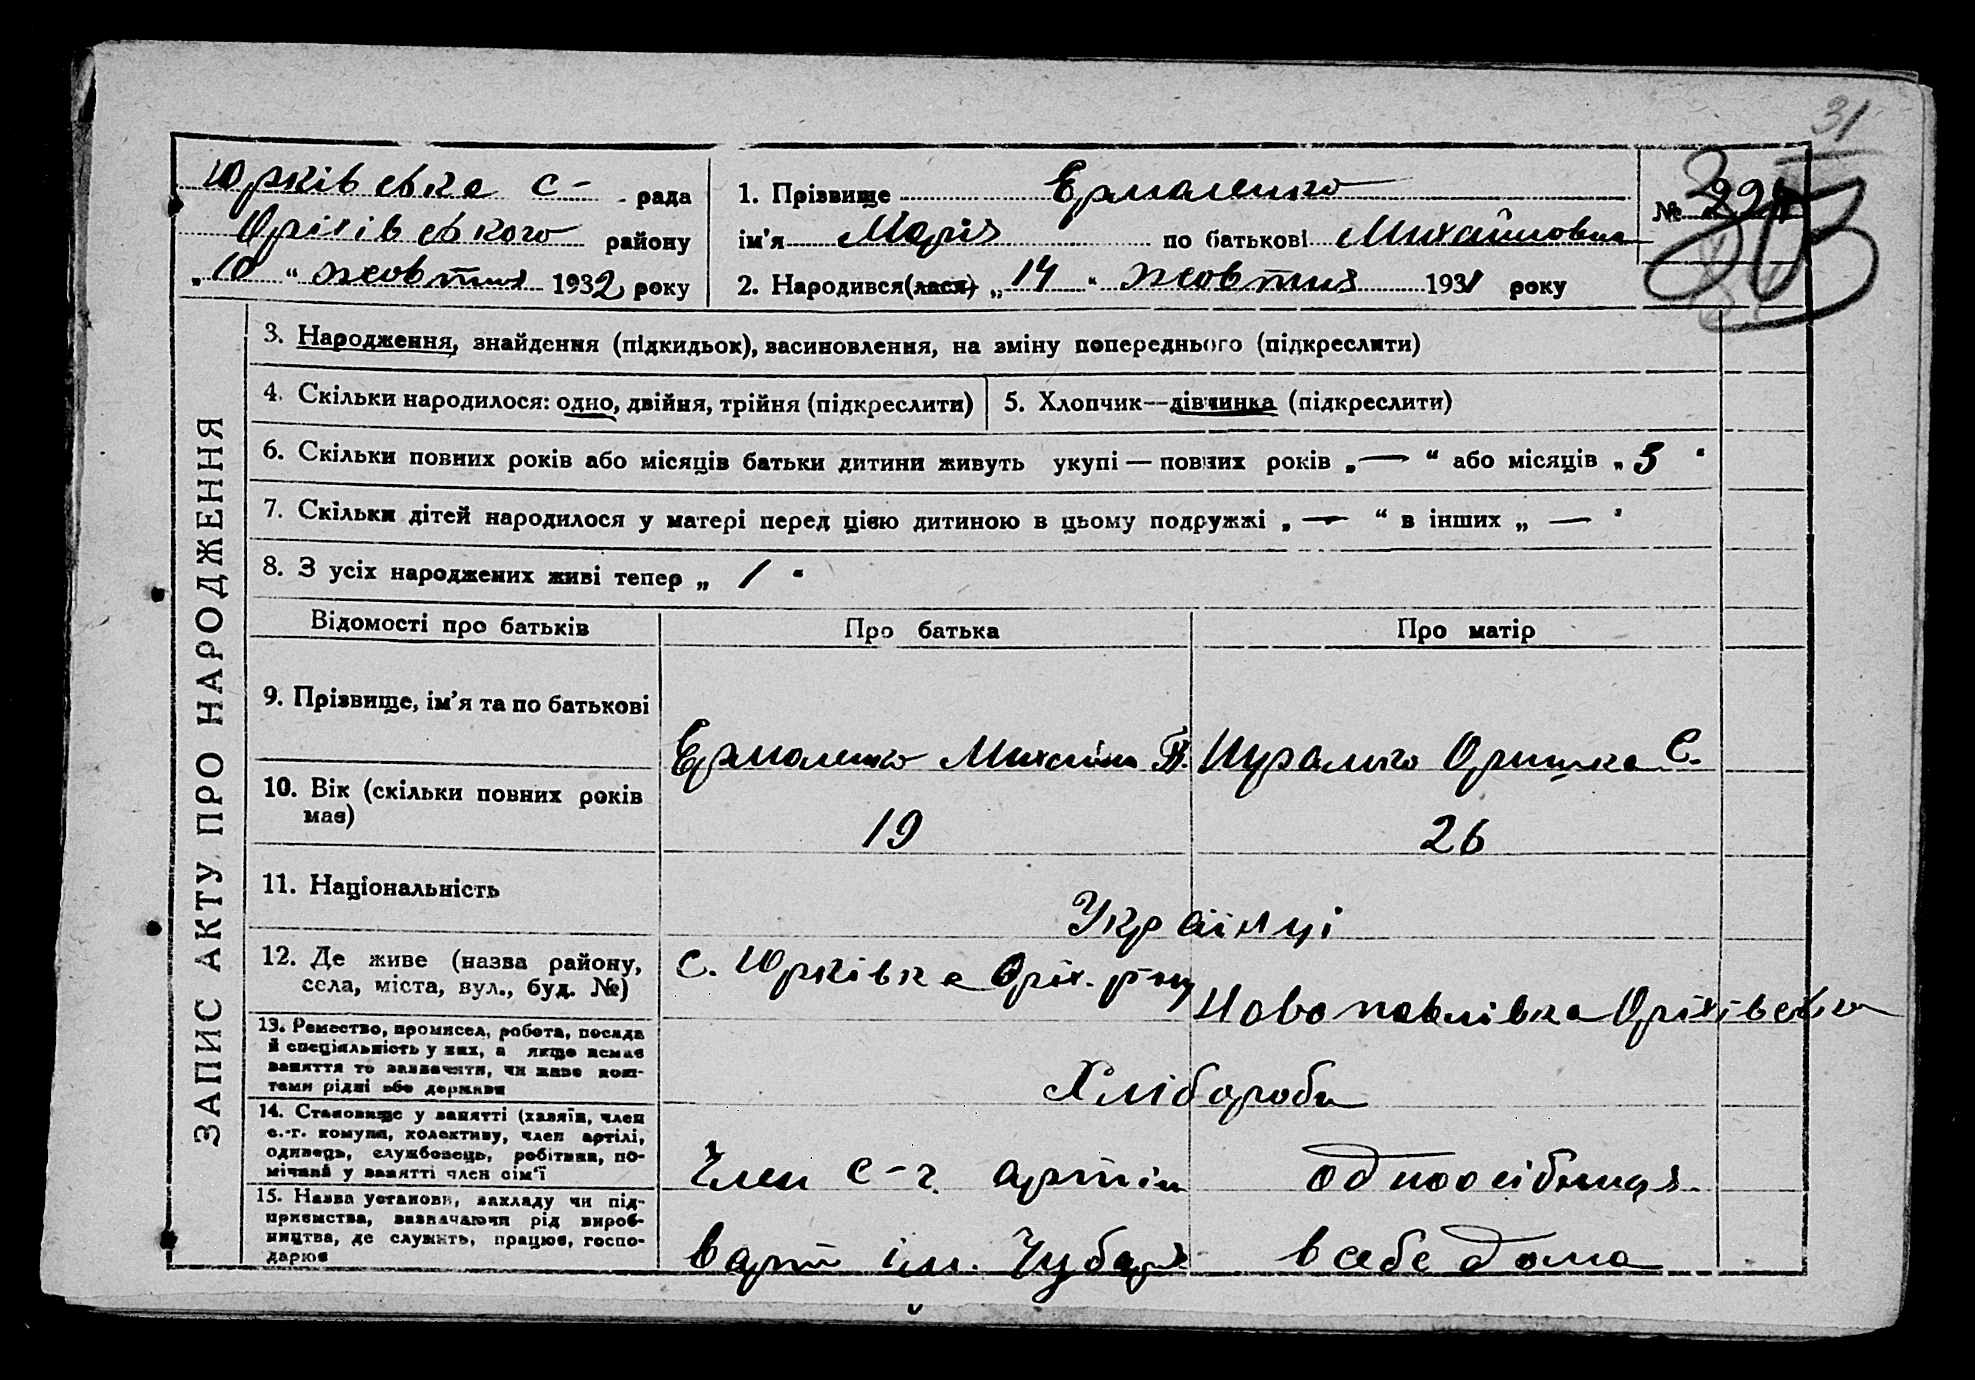 31
Юрківська с- рада
Оріхівського району
„10“ жовтня 1932 року
1. Прізвище Ермоленко
ім'я Марія по батькові Михайловна
2. Народився(лася) „14“ жовтня 1931 року
№
203
ЗАПИС АКТУ ПРО НАРОДЖЕННЯ
3. Народження, знайдення (підкидьок), васиновлення, на зміну попереднього (підкреслити)
4. Скільки народилося: одно, двійня, трійня (підкреслити)
5. Хлопчик—дівчинка (підкреслити)
6. Скільки повних років або місяців батьки дитини живуть укупі — повних років „—“ або місяців „5“
7. Скільки дітей народилося у матері перед цією дитиною в цьому подружжі „—“ в інших „—“
8. З усіх народжених живі тепер „1“
Відомості про батьків
Про батька
Про матір
9. Прізвище, ім'я та по батькові
Ермоленко Михайло П.
Оришка С.
10. Вік (скільки повних років має)
19
26
11. Національність
Українці
12. Де живе (назва району, села, міста, вул., буд. №)
с. Юрківка Оріх. р-ну
Новопавлівка Оріхівсько
13. Ремество, промисел, робота, посада й спеціяльність у них, а якщо немає заняття то зазначити, чи живе коштами рідні або держави
Хлібороби
14. Становище у занятті (хазяїн, член с.-г. комуни, колективу, член артілі, одинець, службовець, робітник, помічний у занятті член сім'ї
Член с-г. артіли
одноосібниця
15. Назва установи, закладу чи підприємства, зазначаючи рід виробництва, де служить, працює, господарює
в арт ім. Чубаря
в себе дома